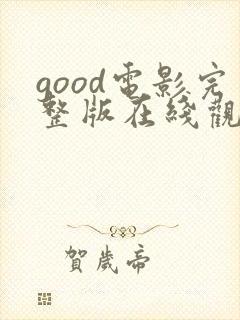 good電影完
整版在綫觀
賀歲帝